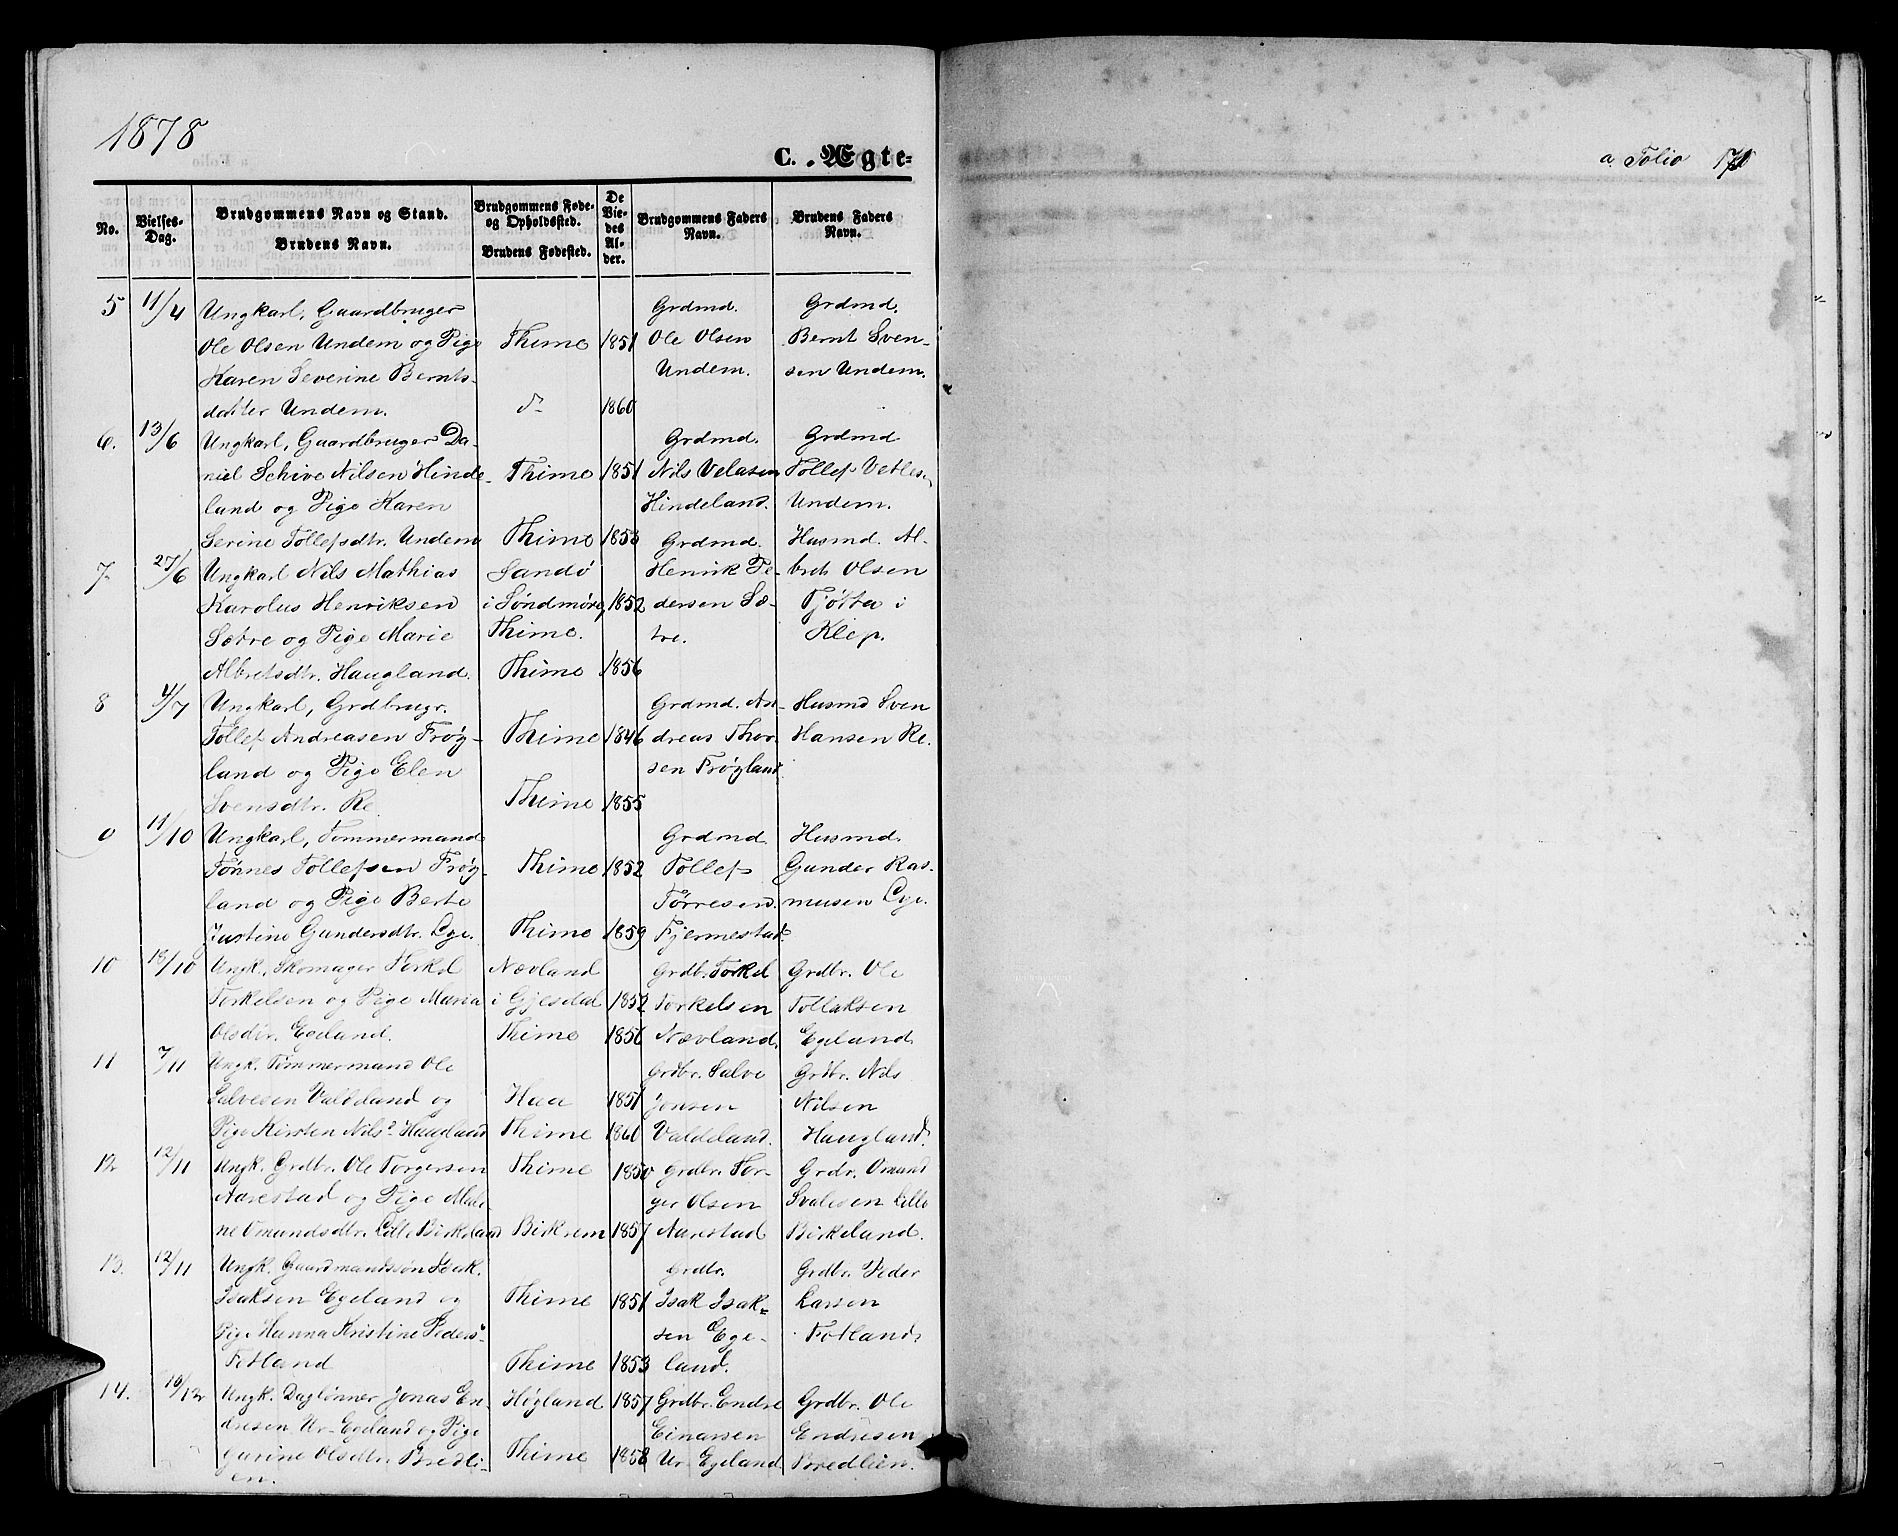 1878
C. Ægte=
a Folio 171
No.
Vielses-Dag.
Brudgommens Navn og Stand.
Brudens Navn.
Brudgommens Føde- og Opholdssted.
Brudens Fødested.
De Vie-des Al-der.
Brudgommens Faders Navn.
Brudens Faders Navn.
5 11/4 Ungkarl, Gaardbruger Grdmd. Grdmd.
Ole Olsen Undem og Pige Thime 1851 Ole Olsen Bernt Sven-
Karen Severine Bernts- Undem. sen Undem.
datter Undem. d- 1860
6. 13/6 Ungkarl, Gaardbruger Da- Grdmd. Grdmd
niel Schive Nilsen Hinde- Thime 1851 Nils Velasen Tollef Vetles-
land og Pige Karen Hindeland. Undem.
Serine Tollefsdtr. Undem Thime 1853 Grdmd. Husmd. Al-
7- 27/6 Ungkarl Nils Mathias Sandø Henrik Pe- bret Olsen
Karolus Henriksen i Søndmøre, 1852 dersen Sæ- Tjøtta i
Sætre og Pige Marie Thime. tre. Klep.
Albretsdtr. Haugland. Thime 1856
8 4/7 Ungkarl, Grdbrugr. Grdmd. An- Husmd Sven
Tollef Andreasen Frøy- Thime 1846 dreas Thor- Hansen Re.
land og Pige Elen sen Frøyland
Svensdtr. Re Thime 1855
11/10 Ungkarl, Tømmermand Grdmd. Husmd.
Tønnes Tollefsen Frøy- Thime 1852 Tollef Gunder Ras-
land og Pige Berte Tørresen musen Lye.
Justine Gundersdtr. Lye. Thime 1859 Fjermestad.
10 18/10 Ungk. Skomager Torkel Nævland Grdbr. Torkel Grdbr. Ole
Torkelsen og Pige Maria i Gjesdal 1852 Torkelsen Tollaksen
Olsdtr. Egeland. Thime 1856 Nævland. Egeland.
11 7/11 Ungk. Tømmermand Ole Grdbr. Salve Grdbr. Nils
Salvesen Valdeland og Haa 1851 Jonsen Nilsen
Pige Kirsten Nilsd Haugland Thime 1860 Valdeland. Haugland.
12 12/11 Ungk. Grdbr. Ole Torgersen Thime 1850 Grdbr. Tor- Grdr. Omund
Aarestad og Pige Male- ger Olsen Svalesen Lille
ne Omundsdtr. Lille Birkeland Birkrem 1857 Aarestad Birkeland.
13. 12/11 Ungk. Gaardmandssøn Isak. Grdbr. Grdbr. Peder
Isaksen Egeland og Thime 1851 Isak Isak= Larsen
Pige Hanna Kristine Peders- sen Ege- Fotland.
Fotland Thime 1853 land.
14. 10/12 Ungk. Dagлønner Jonas En- Høgland 1857 Grdbr. Endre Grdbr. Ole
dresen Ur-Egeland og Pige Einarsen Endresen
Gurine Olsdtr. Bredli- Thime 1858 Ur-Egeland Bredlien.
en.